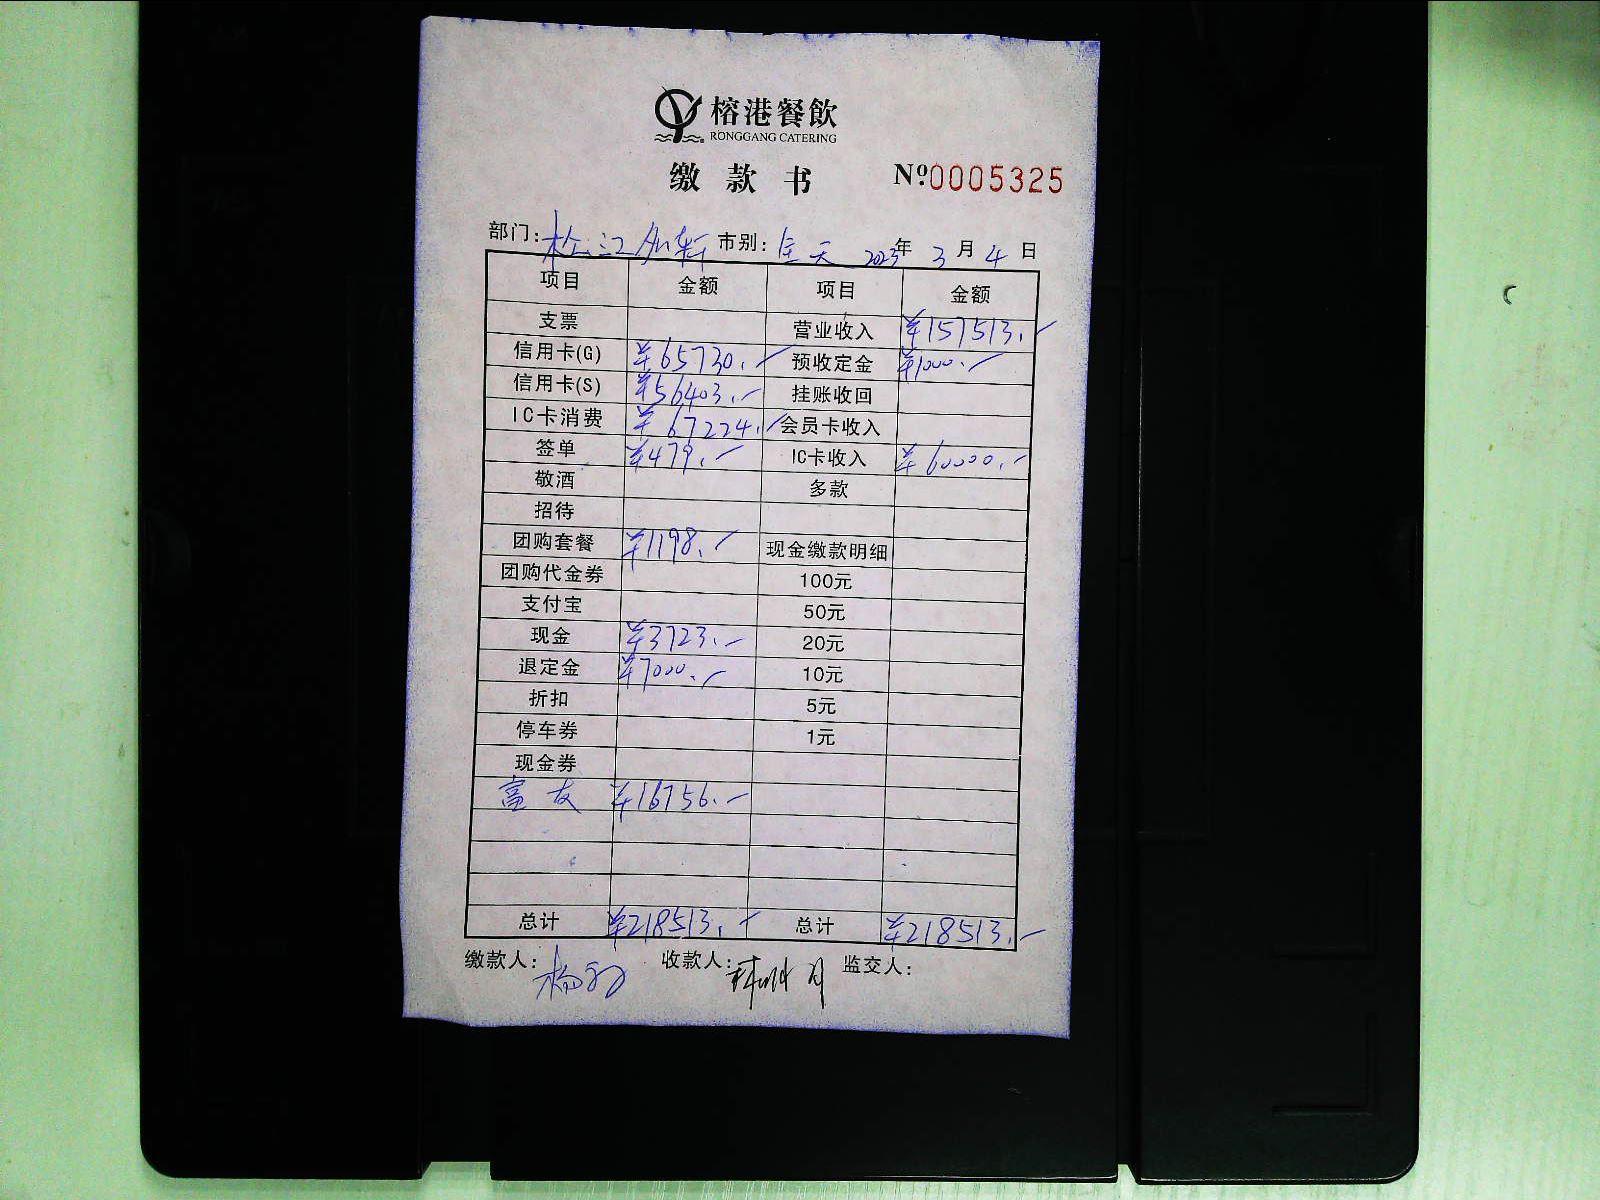 榕港餐飲
RONGGANG CATERING
缴款书 Nº0005325
部门: 松江 轩 市别: 全天 2023年3月4日
项目 金额 项目 金额
支票 营业收入 ¥157513.-
信用卡(G) ¥65730.- 预收定金 ¥1000.-
信用卡(S) ¥56403.- 挂账收回
IC卡消费 ¥67224.- 会员卡收入
签单 ¥479.- IC卡收入 ¥60000.-
敬酒 多款
招待
团购套餐 ¥1198.- 现金缴款明细
团购代金券 100元
支付宝 50元
现金 ¥3723.- 20元
退定金 ¥7000.- 10元
折扣 5元
停车券 1元
现金券
富友 ¥16756.-
总计 ¥218513.- 总计 ¥218513.-
缴款人: 收款人: 监交人: